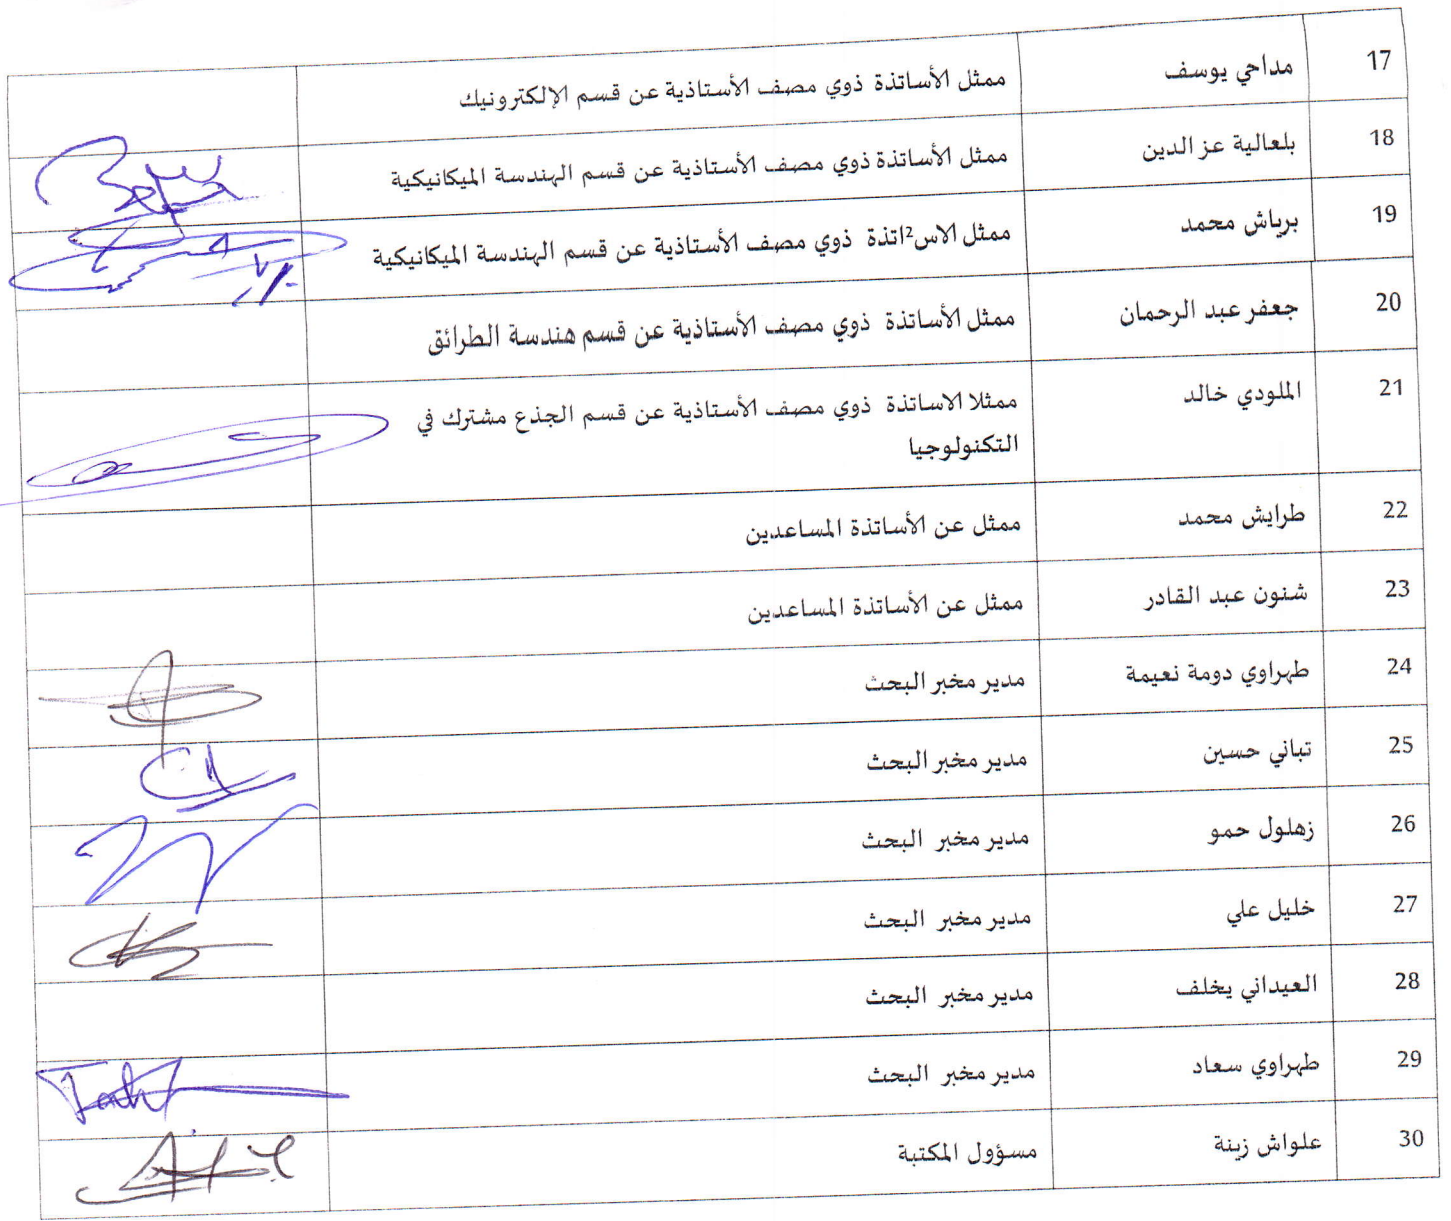 17 مداحي يوسف ممثل الأساتذة ذوي مصف الأستاذية عن قسم الإلكترونيك
18 بلعالية عز الدين ممثل الأساتذة ذوي مصف الأستاذية عن قسم الهندسة الميكانيكية
19 برياش محمد ممثل الاس²اتذة ذوي مصف الأستاذية عن قسم الهندسة الميكانيكية
20 جعفر عبد الرحمان ممثل الأساتذة ذوي مصف الأستاذية عن قسم هندسة الطرائق
21 الملودي خالد ممثلا الاساتذة ذوي مصف الأستاذية عن قسم الجذع مشترك في
التكنولوجيا
22 طرايش محمد ممثل عن الأساتذة المساعدين
23 شنون عبد القادر ممثل عن الأساتذة المساعدين
24 طهراوي دومة نعيمة مدير مخبر البحث
25 تباني حسين مدير مخبر البحث
26 زهلول حمو مدير مخبر البحث
27 خليل علي مدير مخبر البحث
28 العيداني يخلف مدير مخبر البحث
29 طهراوي سعاد مدير مخبر البحث
30 علواش زينة مسؤول المكتبة